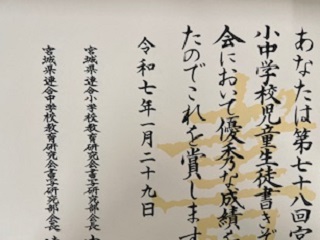 あなたは第七十八回宮
小中学校児童生徒書きぞ
会において優秀な成績を
たのでこれを賞します
令和七年一月二十九日
宮城県連合小学校教育研究会書写研究部会長
宮城県連合中学校教育研究会書写研究部会長